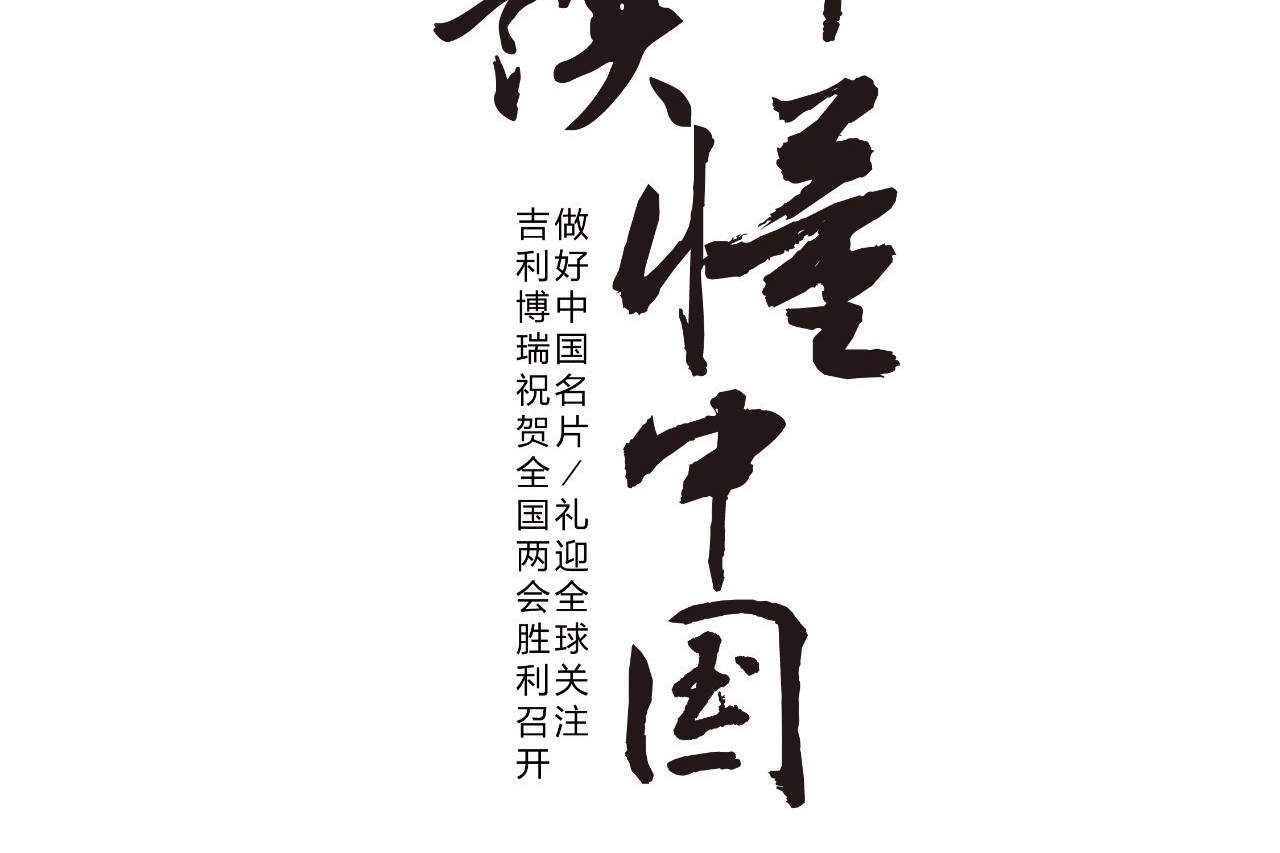 懂中国
做好中国名片/礼迎全球关注
吉利博瑞祝贺全国两会胜利召开